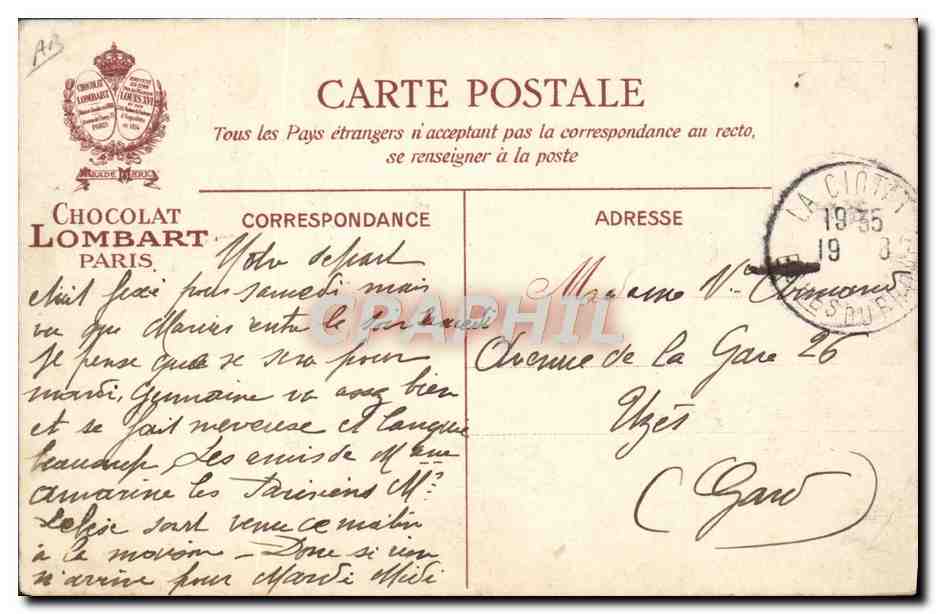 AB
CHOCOLAT LOMBART
PARIS
LOUIS XVI
TRADE MARK
CHOCOLAT
LOMBART
PARIS
CARTE POSTALE
Tous les Pays étrangers n'acceptent pas la correspondance au recto,
se renseigner à la poste
CORRESPONDANCE
ADRESSE
LA CIOTAT
19 35
19 8
BCHES DU RHONE
CPAPHIL
Notre depart
était fixé pour samedi mais
vu que Marius entre le
Je pense que se sera pour
mardi, Germaine va assez bien
et se fait nerveuse et langue
beaucoup Les amis de Mme
amarine les Parisiens Mr
sont venu ce matin
à la maison — Donc si rien
n'arrive pour Mardi Midi
Madame Ve Armand
Avenue de la Gare 26
Uzès
(Gard)